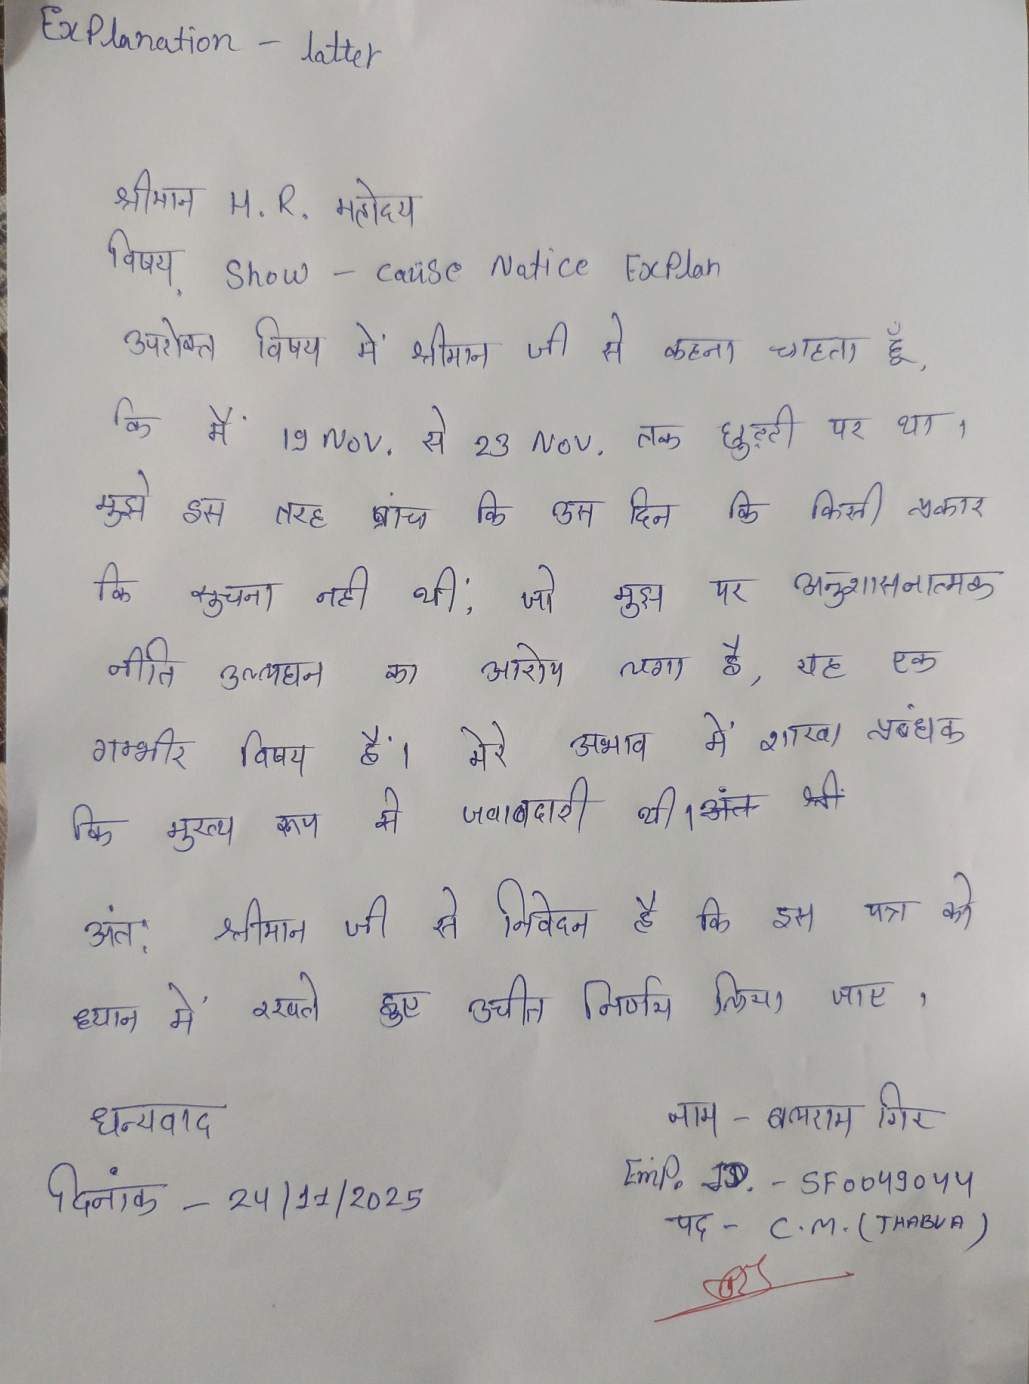 Explanation - latter
श्रीमान H. R. महोदय
विषय, Show - cause Notice Explan
उपरोक्त विषय में श्रीमान जी से कहना चाहता हूँ,
कि मैं 19 Nov. से 23 Nov. तक छुट्टी पर था।
मुझे इस तरह ब्रांच कि उस दिन कि किसी प्रकार
कि सुचना नही थीं, जो मुझ पर अनुशासनात्मक
नीति उल्लघन का आरोप लगा है, यह एक
गम्भीर विषय हैं। मेरे अभाव में शाखा प्रबंधक
कि मुख्य रूप से जवाबदारी थी। अंत श्री
अंत: श्रीमान जी से निवेदन है कि इस पत्र को
ध्यान में रखते हुए उचीत निर्णय लिया जाए।
धन्यवाद
दिनांक - 24/11/2025
नाम - बलराम गिर
Emp. ID. - SF0049044
पद - C.M. (THABUA)